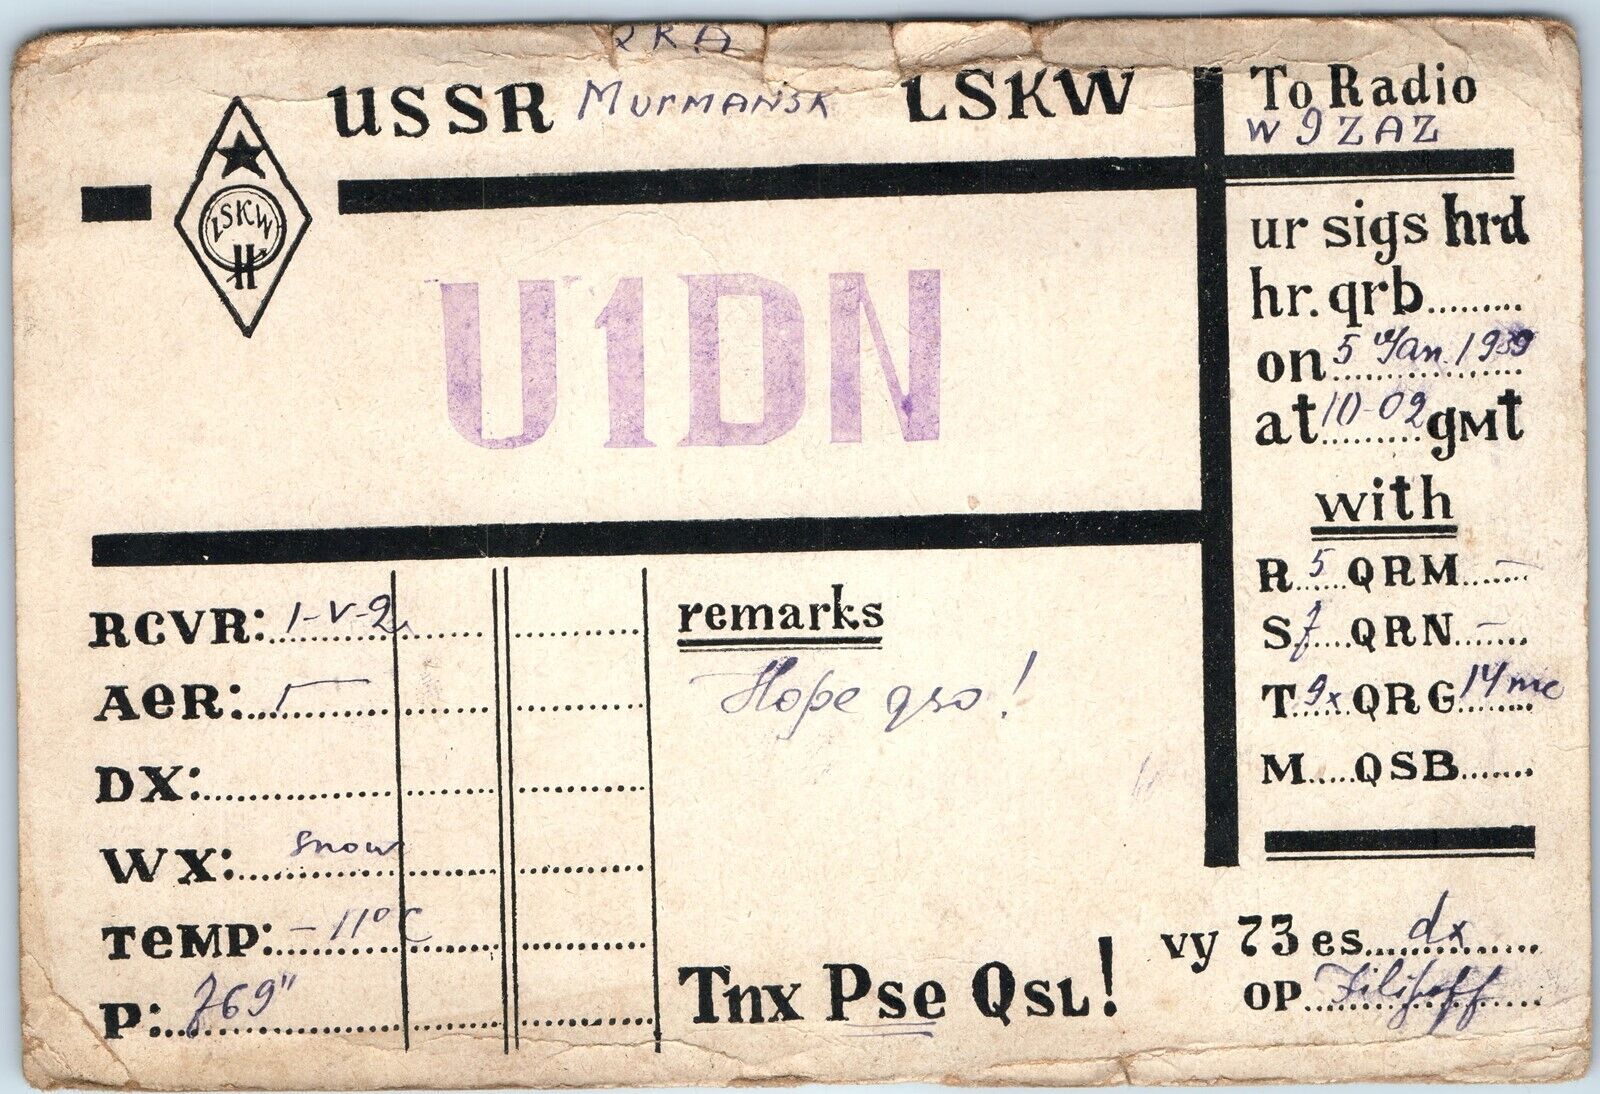 QRA
USSR Murmansk LSKW
LSKW
U1DN
To Radio
W9ZAZ
ur sigs hrd
hr. qrb.........
on 5 Jan. 1939
at 10-02 gmt
with
R 5 QRM –
S 7 QRN –
T 9x QRG 14 mc
M.....QSB.......
RCVR: 1-V-2
AER: Г
DX:
WX: snow
TEMP: -11°C
P: 769"
remarks
Hope qso!
Tnx Pse QSL!
vy 73 es dx
OP